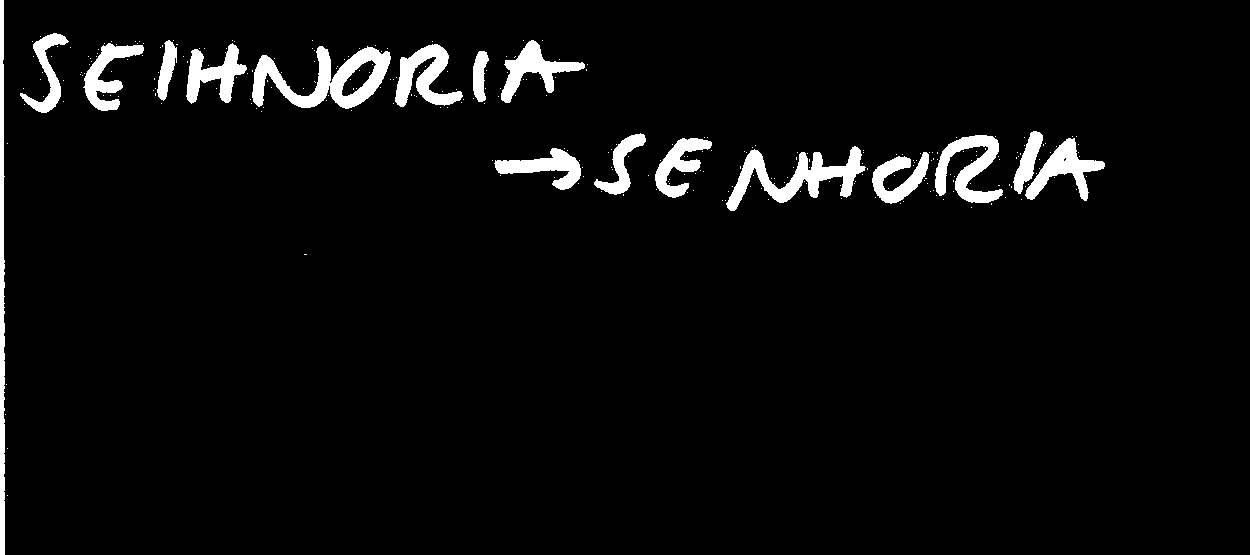 SEIHNORIA
→SENHORIA